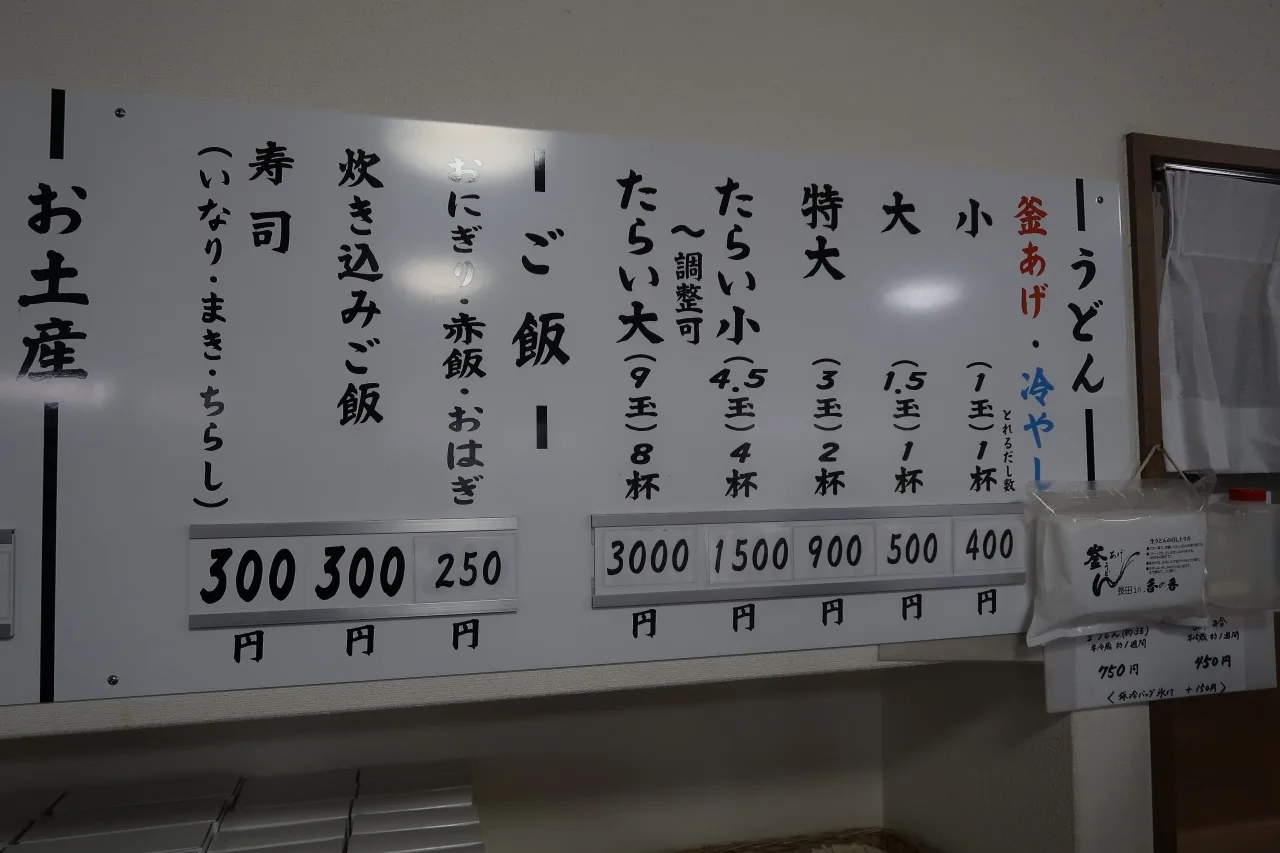 うどん
釜あげ・冷やし
とれるだし数
小 (1玉) 1杯 400円
大 (1.5玉) 1杯 500円
特大 (3玉) 2杯 900円
たらい小 (4.5玉) 4杯 1500円
〜調整可
たらい大 (9玉) 8杯 3000円
ご飯
おにぎり・赤飯・おはぎ 250円
炊き込みご飯 300円
寿司 300円
(いなり・まき・ちらし)
お土産
釜あげ
長田in.香の香
要冷蔵 約1週間
750円
約1週間
450円
+150円